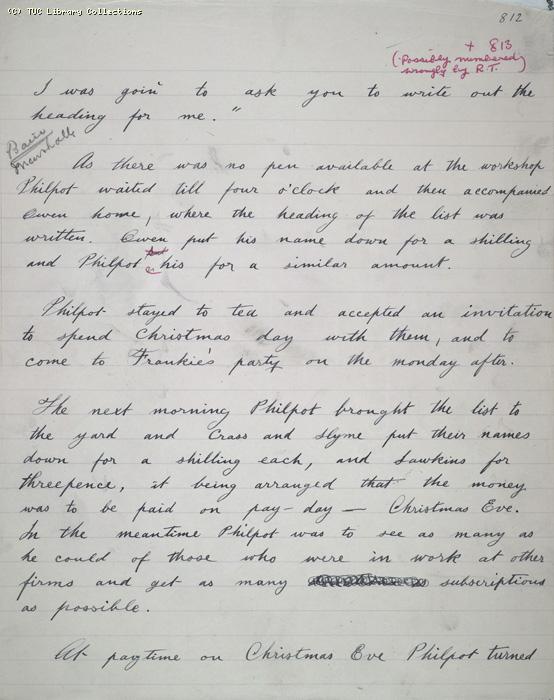 (C) TUC Library Collections
812
+ 813
(Possibly numbered
wrongly by R.T.)
I was goin' to ask you to write out the
heading for me."
As there was no pen available at the workshop
Philpot waited till four o'clock and then accompanied
Owen home, where the heading of the list was
written. Owen put his name down for a shilling
and Philpot his for a similar amount.
Philpot stayed to tea and accepted an invitation
to spend Christmas day with them, and to
come to Frankie's party on the monday after.
The next morning Philpot brought the list to
the yard and Crass and Slyme put their names
down for a shilling each, and Sawkins for
threepence, it being arranged that the money
was to be paid on pay-day — Christmas Eve.
In the meantime Philpot was to see as many as
he could of those who were in work at other
firms and get as many subscriptions
as possible.
At paytime on Christmas Eve Philpot turned